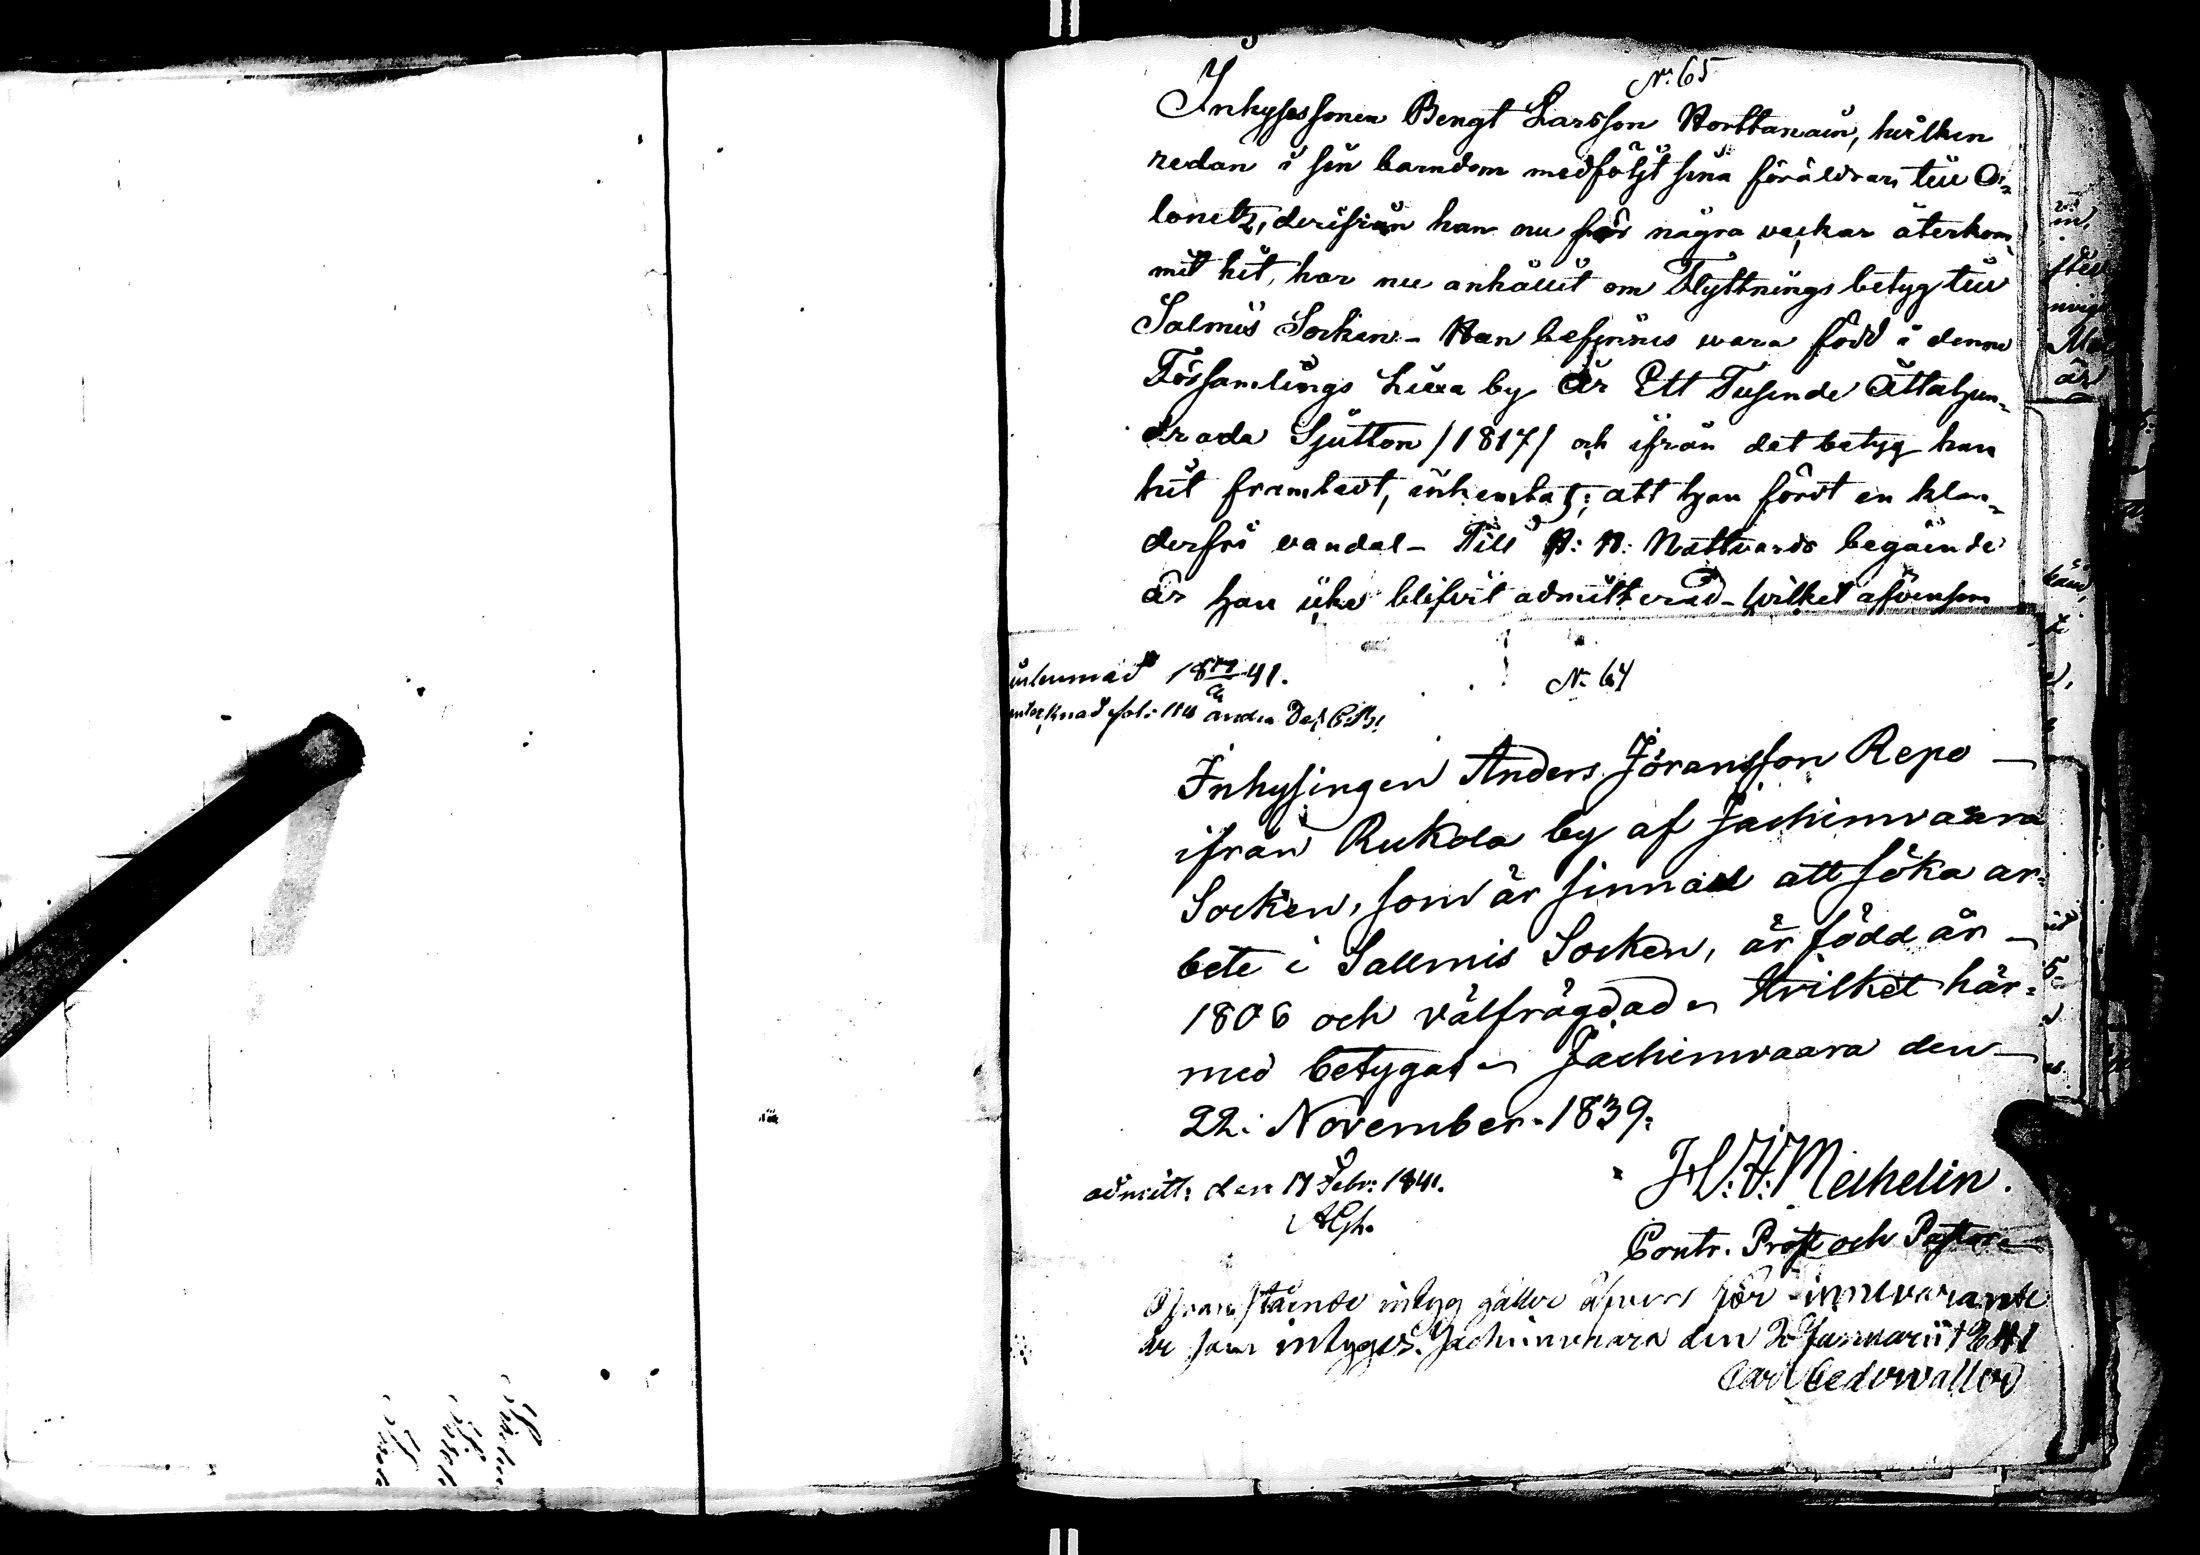 N:o 65
Inhysessonen Bengt Larsson Horttanain, hvilken
redan i sin barndom medföljt sina föräldrar till O-
lonetz, derifrån han nu för några veckar återkom-
mit hit, har nu anhållit om Flyttnings betyg till
Salmis Socken - Han befinnes vara född i denne
Församlings by År Ett Tusende Åttahun-
drada Sjutton /1817/ och ifrån det betyg han
hit framtedt, inhemtas; att han fördt en klan-
derfri vandel - Till H: H: Nattvards begående
är han icke blifvit admitterad - hvilket äfvensom
inlemnad 18 41.
antecknad fol: 110 andra Del. C.B.
N:o 64
Inhysingen Anders Jöransson Repo
ifrån Rukola by af Jachimvaara
Socken, som är sinnad att söka ar-
bete i Sallmis Socken, är född år
1806 och välfrägdad - Hvilket här-
med betygas - Jachimvaara den
22: November 1839:
J: V: F: Mechelin.
Contr. Prost och Pastor
admitt: den 17 Febr: 1841.
Ofvanstående intyg gäller äfven för innevarande
år som intyges. Jachimvaara den 2 Januarii 1841
Carl Cederwaller